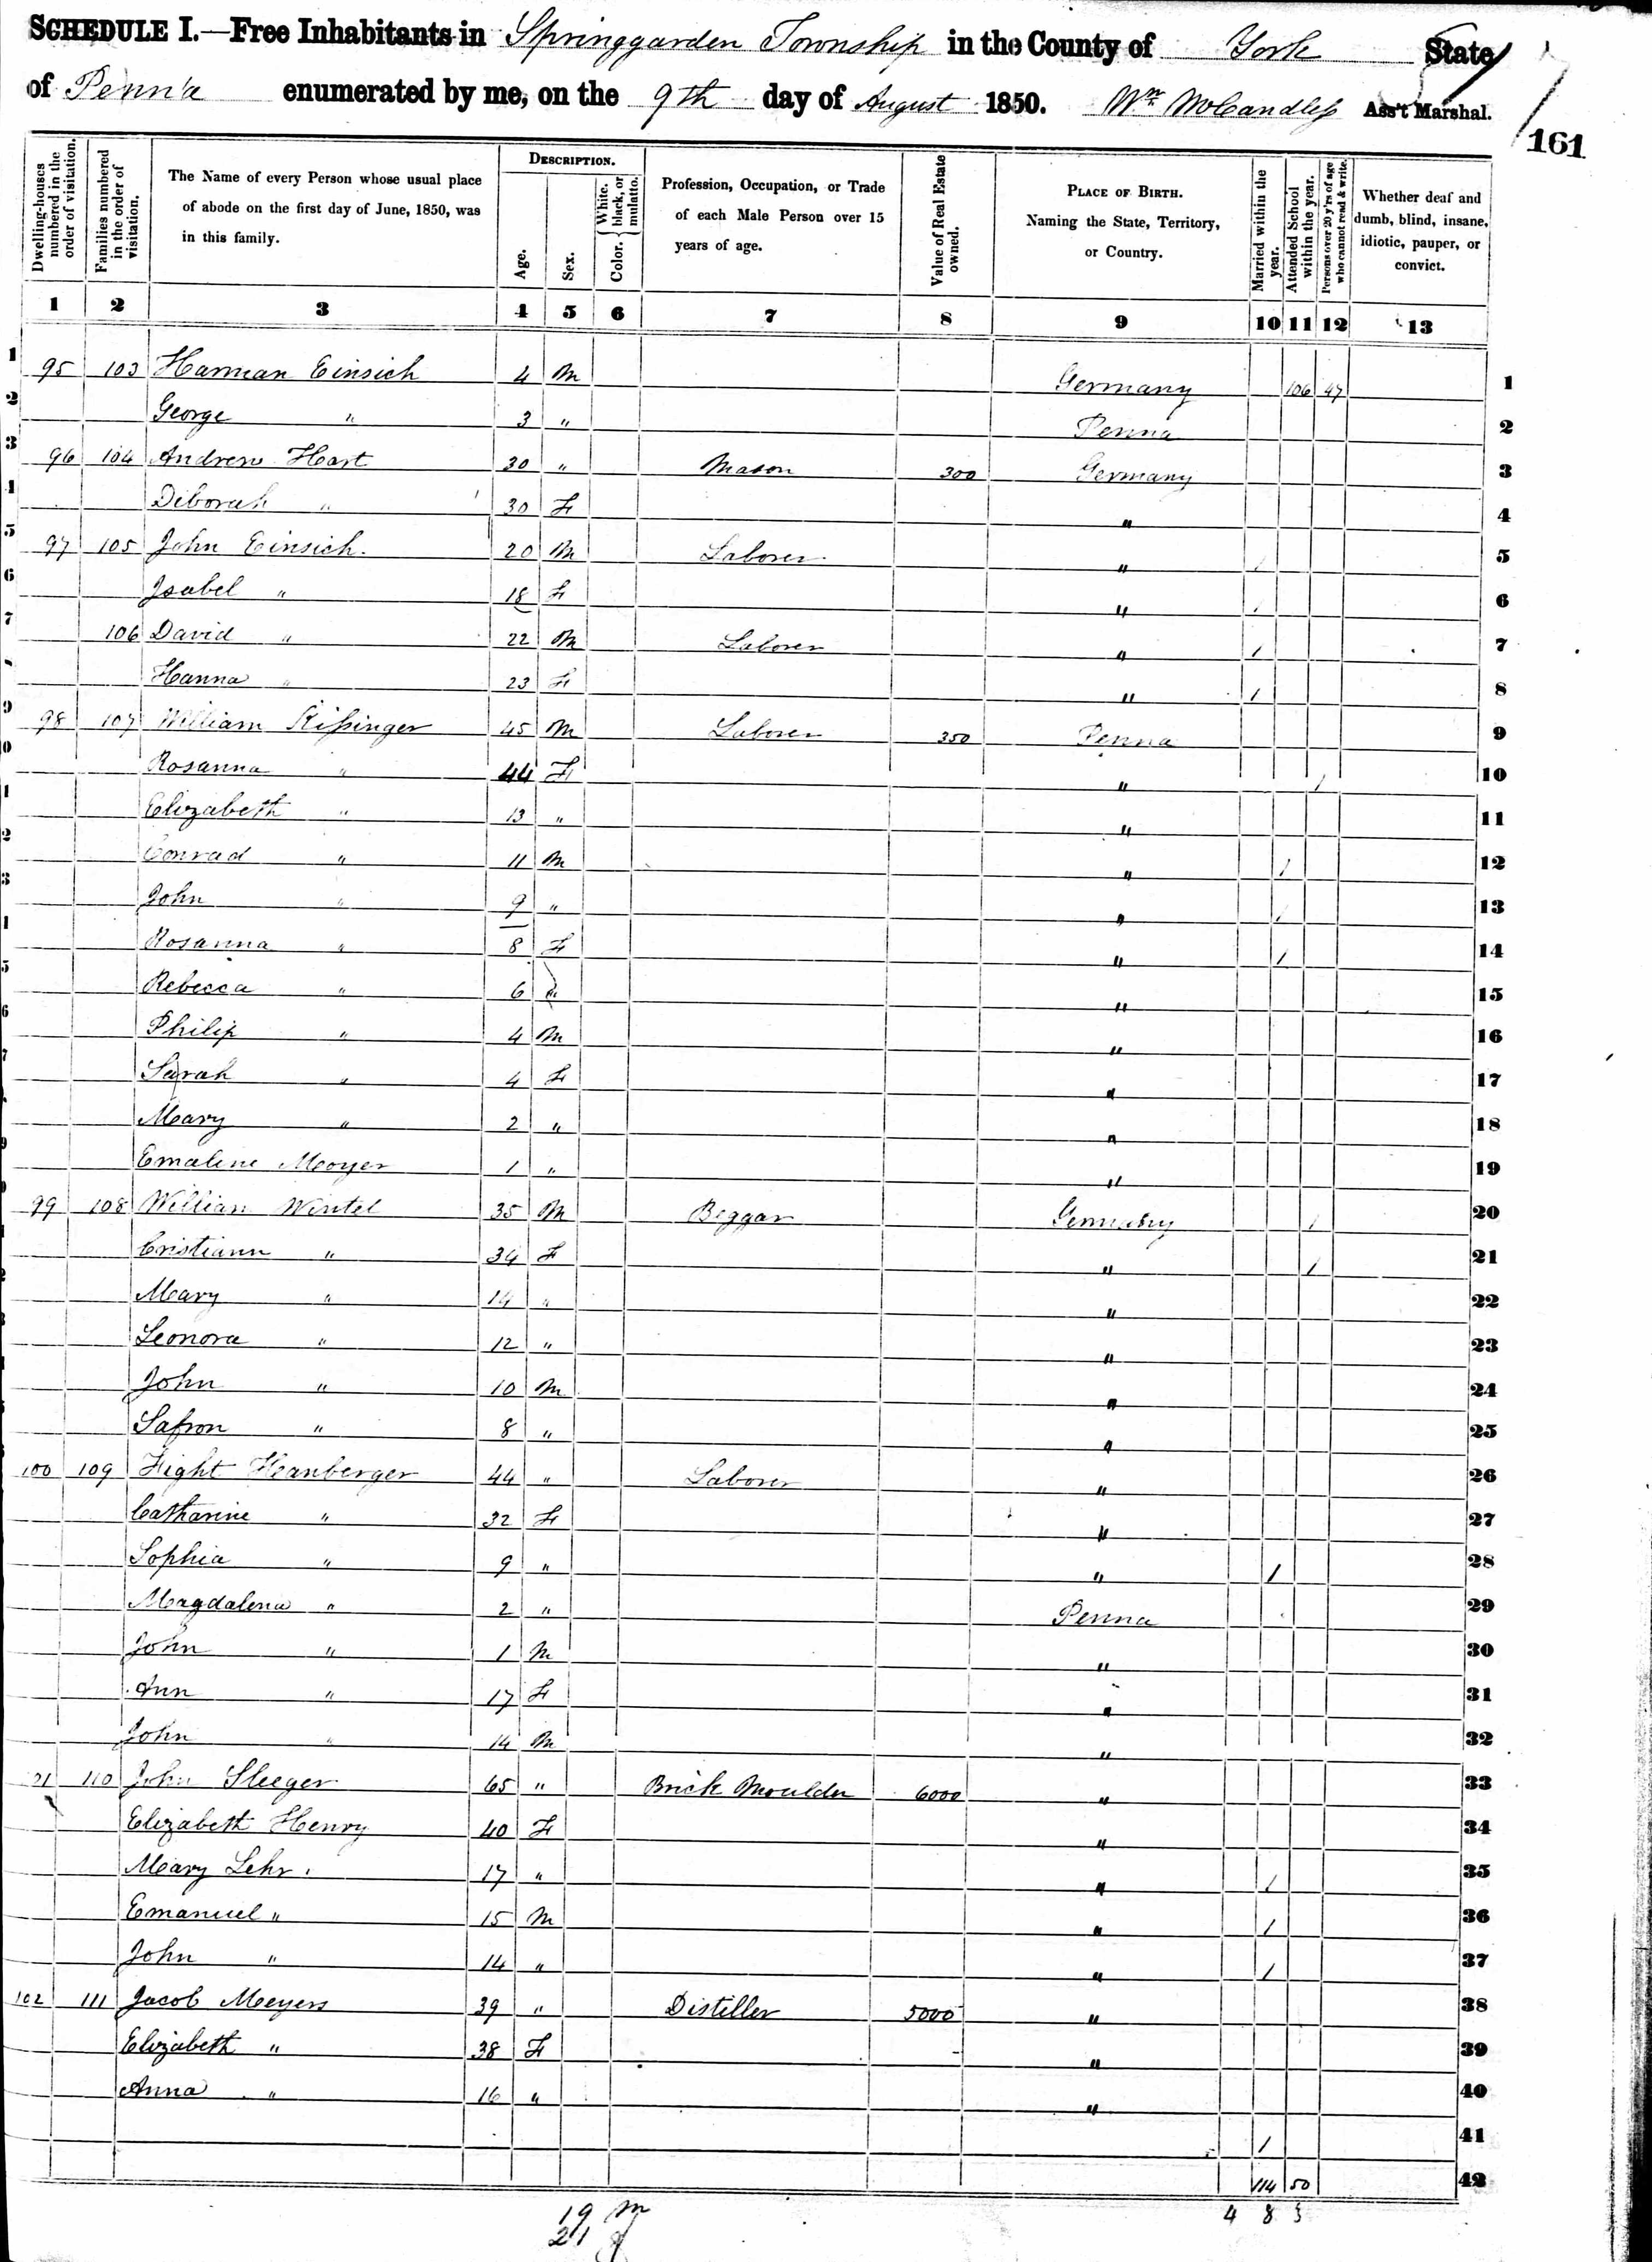 SCHEDULE I.—Free Inhabitants in Springgarden Township in the County of York State
of Penn'a enumerated by me, on the 9th day of August 1850. Wm McCandless Ass't Marshal.
161
Dwelling-houses numbered in the order of visitation.
Families numbered in the order of visitation.
The Name of every Person whose usual place of abode on the first day of June, 1850, was in this family.
DESCRIPTION.
Age.
Sex.
Color. White, black, or mulatto.
Profession, Occupation, or Trade of each Male Person over 15 years of age.
Value of Real Estate owned.
PLACE OF BIRTH. Naming the State, Territory, or Country.
Married within the year.
Attended School within the year.
Persons over 20 y'rs of age who cannot read & write.
Whether deaf and dumb, blind, insane, idiotic, pauper, or convict.
1 2 3 4 5 6 7 8 9 10 11 12 13
1 95 103 Harman Einsich 4 M Germany 106 47 1
2 George " 3 " Penna 2
3 96 104 Andrew Hart 30 " Mason 300 Germany 3
Deborah " 30 F " 4
5 97 105 John Einsich 20 M Laborer " / 5
6 Isabel " 18 F " / 6
7 106 David " 22 M Laborer " / 7
Hanna " 23 F " / 8
9 98 107 William Kissinger 45 M Laborer 350 Penna 9
Rosanna " 44 F " / 10
Elizabeth " 13 " " 11
Conrad " 11 M " / 12
John " 9 " " / 13
Rosanna " 8 F " / 14
Rebecca " 6 " " 15
Philip " 4 M " 16
Sarah " 4 F " 17
Mary " 2 " " 18
Emaline Moyer 1 " " 19
99 108 William Wintel 35 M Beggar Germany / 20
Cristiann " 34 F " / 21
Mary " 14 " " 22
Leonora " 12 " " 23
John " 10 M " 24
Safron " 8 " " 25
100 109 Fight Heanberger 44 " Laborer " 26
Catharine " 32 F " 27
Sophia " 9 " " / 28
Magdalena " 2 " Penna 29
John " 1 M " 30
Ann " 17 F " 31
John " 14 M " 32
21 110 John Sleeger 65 " Brick Moulder 6000 " 33
Elizabeth Henry 40 F " 34
Mary Lehr 17 " " / 35
Emanuel " 15 M " / 36
John " 14 " " / 37
102 111 Jacob Meyers 39 " Distiller 5000 " 38
Elizabeth " 38 F " 39
Anna " 16 " " 40
/ 41
114 50 42
19 M 4 8 3
21 f